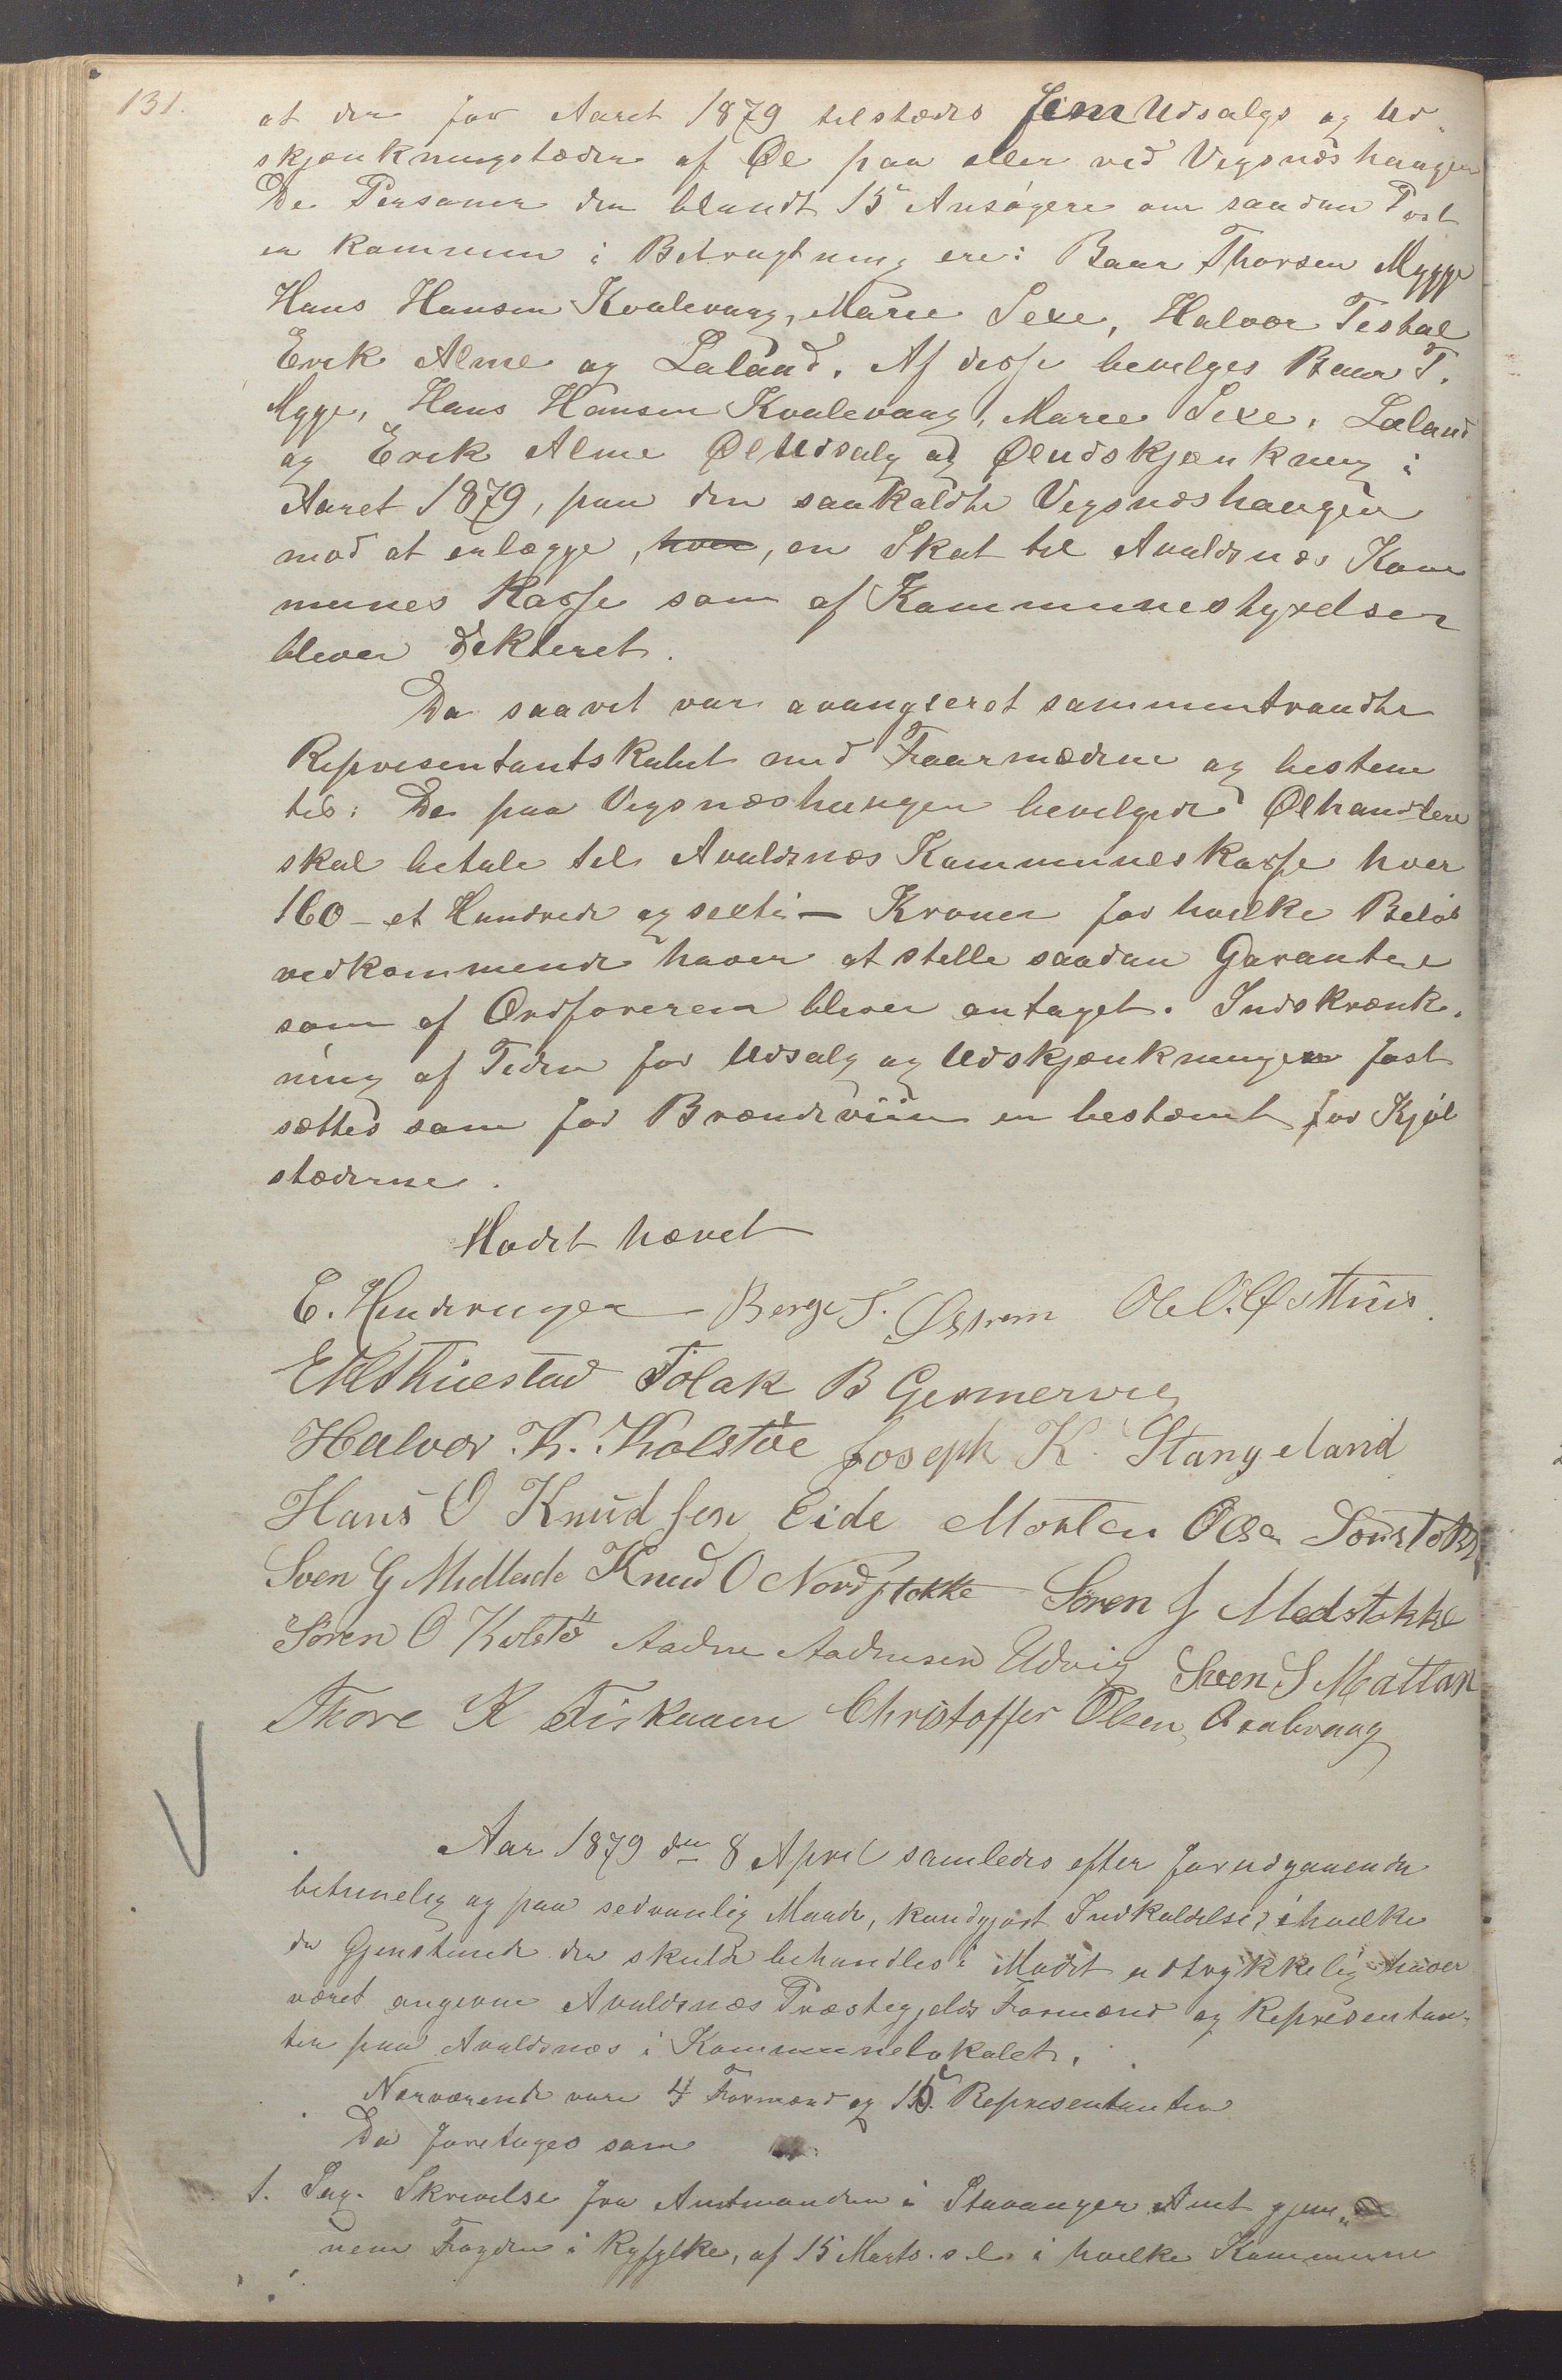 131.
at der for Aaret 1879 tilstædes fem Udsalgs og Ud-
skjænkningstæder af Øl paa eller ved Vigsnæshaugen
De Personer der blandt 15 Ansøgere om saadan Post
er kommen i Betragtning ere: Baar Thorsen Mygge
Hans Hansen Kvalevaag, Marie Sexe, Halvor Testal
Erik Alme og Laland. Af disse bevilges Baar T.
Mygge, Hans Hansen Kvalevaag, Marie Sexe, Laland
og Erik Alme Øludsalg og Øludskjænkning i
Aaret 1879, paa den saakaldte Vigsnæshaugen
mod at erlægge, hver, en Skat til Avaldsnæs Kom
munes Kasse som af Kommunestyrelsen
bliver dekteret.
Da saavit var avangseret sammentraadte
Repræsentantskabet med Foormædene og bestem
tes: De paa Vigsnæshaugen bevilgede Ølhandlere
skal betale til Avaldsnæs Kommuneskasse hver
160 - et Hundrede og sexti - Kroner for hvilke Beløb
vedkommende haver at stelle saadan Garantere
som af Ordføreren bliver antaget. Indskrænk-
ning af Tiden for Udsalg og Udskjænkningen fast
sættes som for Brændeviin er bestemt for Kjøb
stæderne.
Mødet hævet
E. Hinderager Berge S. Østrem Ole O. Østhus
E Thuestad Tolak B Gismervig
Halvor K. Kolstøe Joseph K. Stangeland
Hans O Knudsen Eide Morten Olsen Sørstokke
Sven G Midbøde Knud O Nordstokke Søren J Medstokke
Søren O Kolstø Aadne Aadnesen Udvig Sven S Mattan
Thore K Fiskaaen Christoffer Olsen Qvalevaag
Aar 1879 den 8 April samledes efter forudgaaende
betimelig og paa sedvanlig Maade, kundgjort Indkaldelse, i hvilke
de Gjenstande der skulde behandles i Mødet udtrykkelig haver
været angivne Avaldsnæs Præstegjelds Formænd og Repræsentan-
ter paa Avaldsnæs i Kommunelokalet.
Nærværende vare 4 Formænd og 15 Repræsentanter
Da foretoges som
1. Sag. Skrivelse fra Amtmanden i Stavanger Amt gjen-
nem Fogden i Ryfylke, af 15 Marts s. l. i hvilke Kommune